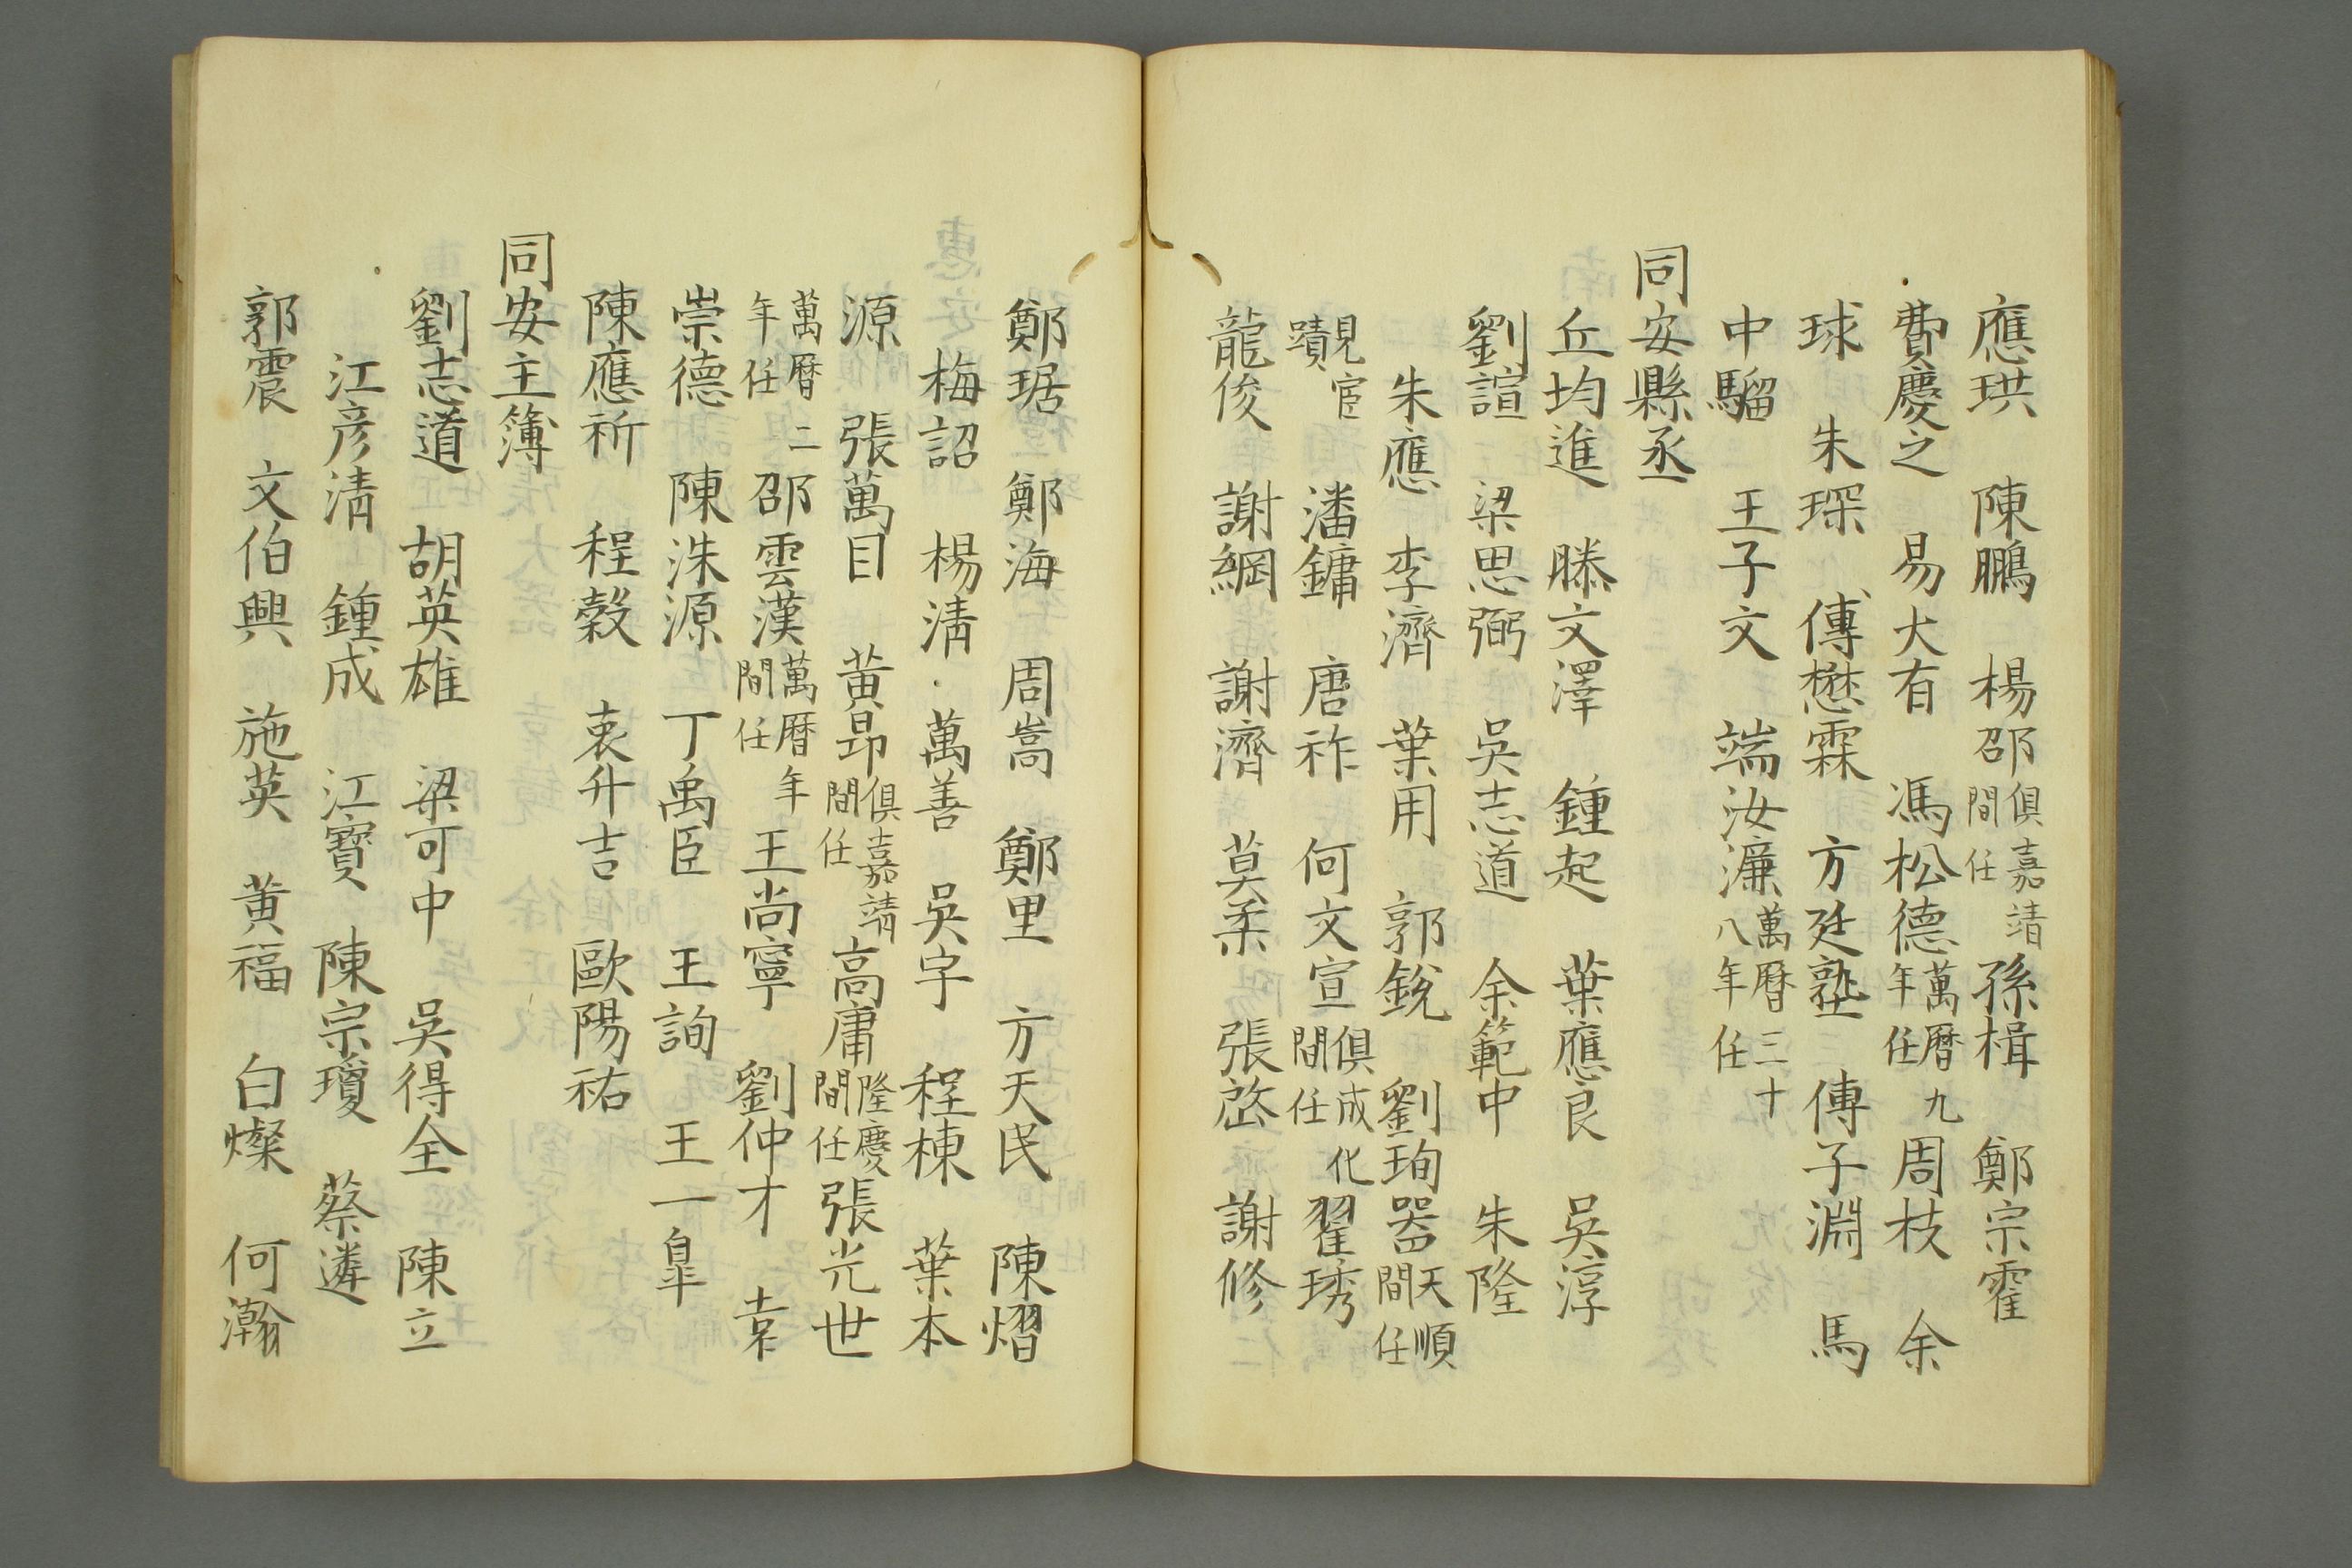 應珙 陳鵬 楊邵 俱嘉靖間任 孫楫 鄭宗霍
費慶之 易大有 馮松德 萬曆九年任 周枝 余
球 朱琛 傅懋霖 方廷塾 傅子淵 馬
中騮 王子文 端汝濂 萬曆三十八年任
同安縣丞
丘均進 滕文澤 鍾起 葉應良 吳淳
劉諠 梁思弼 吳志道 余範中 朱隆
朱應 李濟 葉用 郭銳 劉珣器 天順間任
見宦蹟 潘鏞 唐祚 何文宣 俱成化間任 翟琇
龍俊 謝綱 謝濟 莫柔 張啓 謝修
鄭琚 鄭海 周嵩 鄭里 方天民 陳熠
梅詔 楊淸 萬善 吳宇 程棟 葉本
源 張萬目 黃昂 俱嘉靖間任 高庸 隆慶間任 張光世
萬曆二年任 邵雲漢 萬曆年間任 王尚寧 劉仲才 袁
崇德 陳洙源 丁禹臣 王詢 王一臯
陳應祈 程穀 衷升吉 歐陽祐
同安主簿
劉志道 胡英雄 梁可中 吳得全 陳立
江彦淸 鍾成 江寶 陳宗瓊 蔡遴
郭震 文伯興 施英 黃福 白燦 何瀚